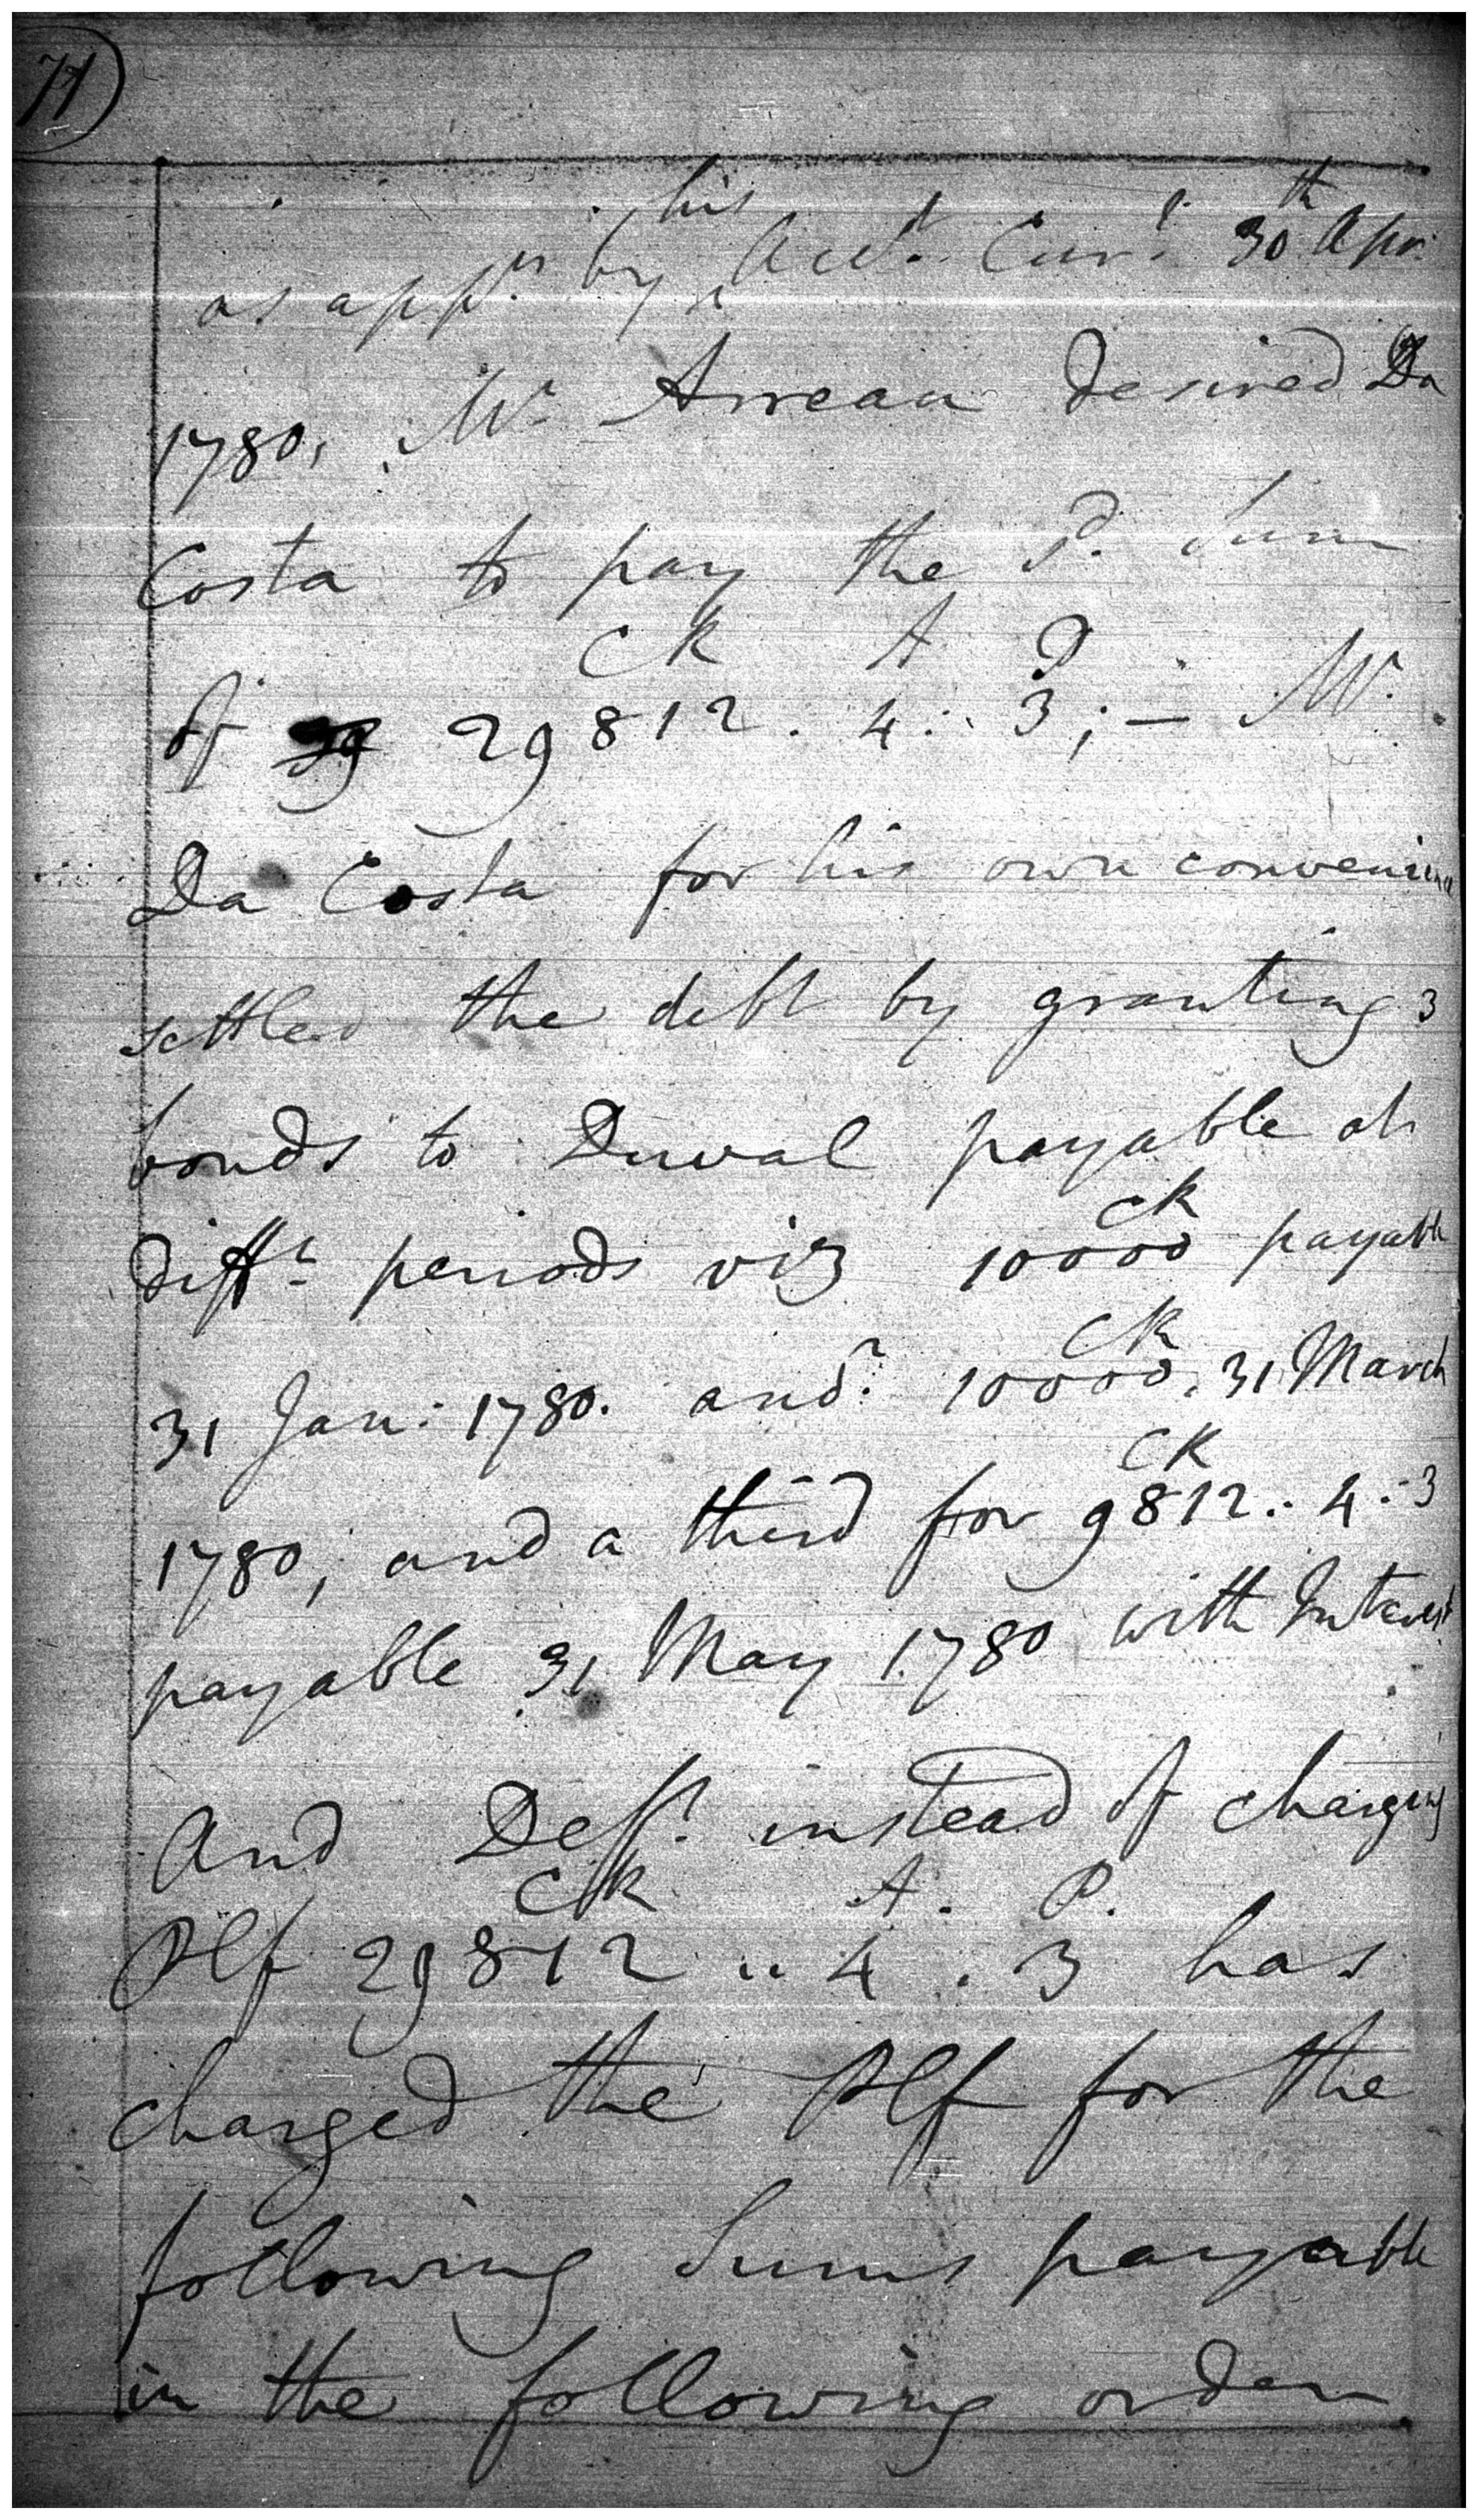 71
as apprs by his Acct. Curt 30th Apr:
1780, Mr Arreau desired Da
Costa to pay the sd. Sum
CK A P
of 29812. 4: 3; — Mr.
Da Costa for his own convenience
settled the debt by granting 3
bonds to Duval payable at
CK
difft periods viz 10000 payable
CK
31 Jan: 1780. and 10000. 31 March
CK
1780, and a third for 9812: 4: 3
payable 31 May 1780 with Interest
And Deft. instead of charging
CK A. P.
Plf 29812 .. 4 . 3 has
charged the Plf for the
following Sums payable
in the following order